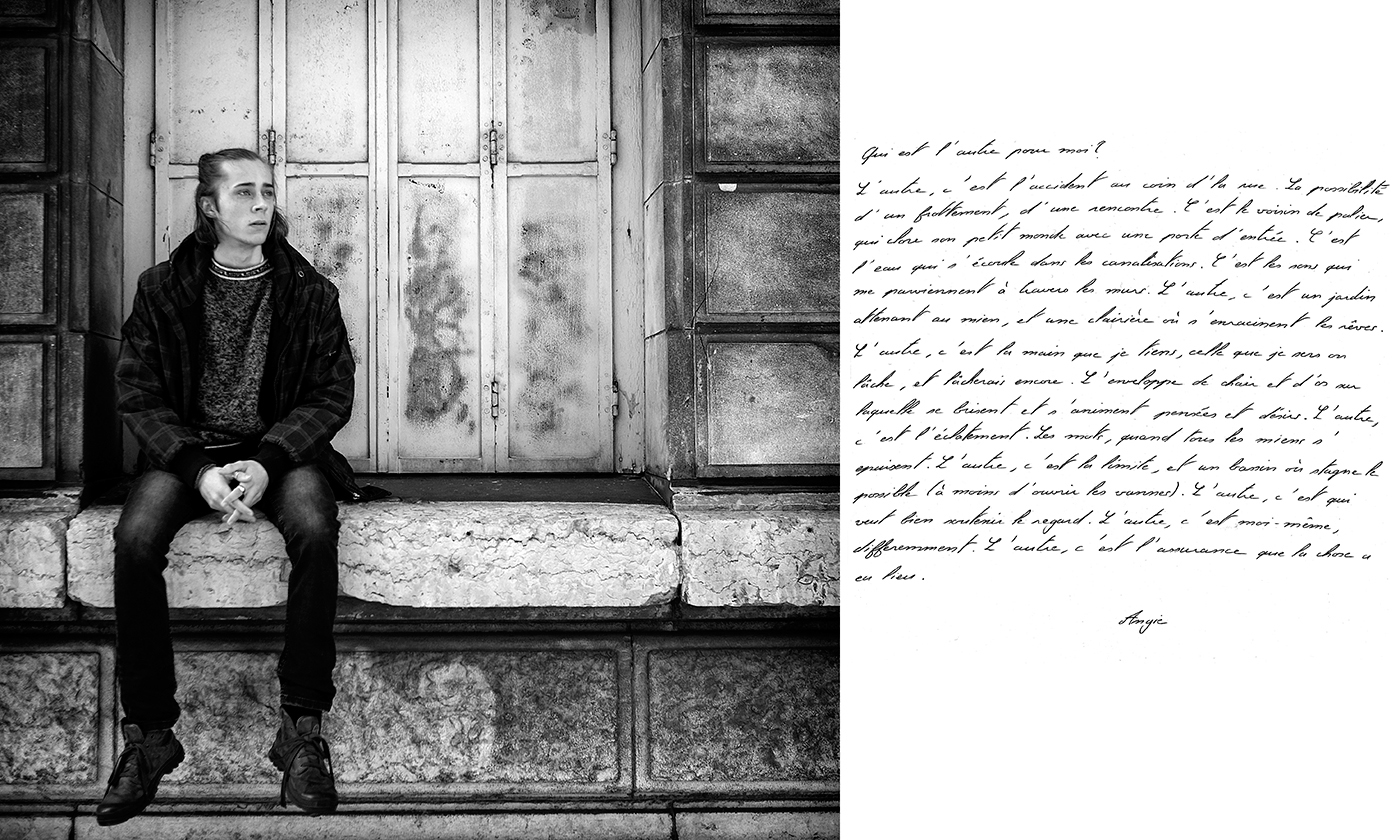 Qui est l'autre pour moi?
L'autre, c'est l'accident au coin d'la rue. La possibilité
d'un frottement, d'une rencontre. C'est le voisin de palier,
qui clore son petit monde avec une porte d'entrée. C'est
l'eau qui s'écoule dans les canalisations. C'est les sons qui
me parviennent à travers les murs. L'autre, c'est un jardin
attenant au mien, et une clairière où s'enracinent les rêves.
L'autre, c'est la main que je tiens, celle que je sers ou
lâche, et lâcherais encore. L'enveloppe de chair et d'os sur
laquelle se brisent et s'animent pensées et désirs. L'autre,
c'est l'éclatement. Les mots, quand tous les miens s'
épuisent. L'autre, c'est la limite, et un bassin où stagne le
possible (à moins d'ouvrir les vannes). L'autre, c'est qui
veut bien soutenir le regard. L'autre, c'est moi-même,
différemment. L'autre, c'est l'assurance que la chose a
eu lieu.
Angie